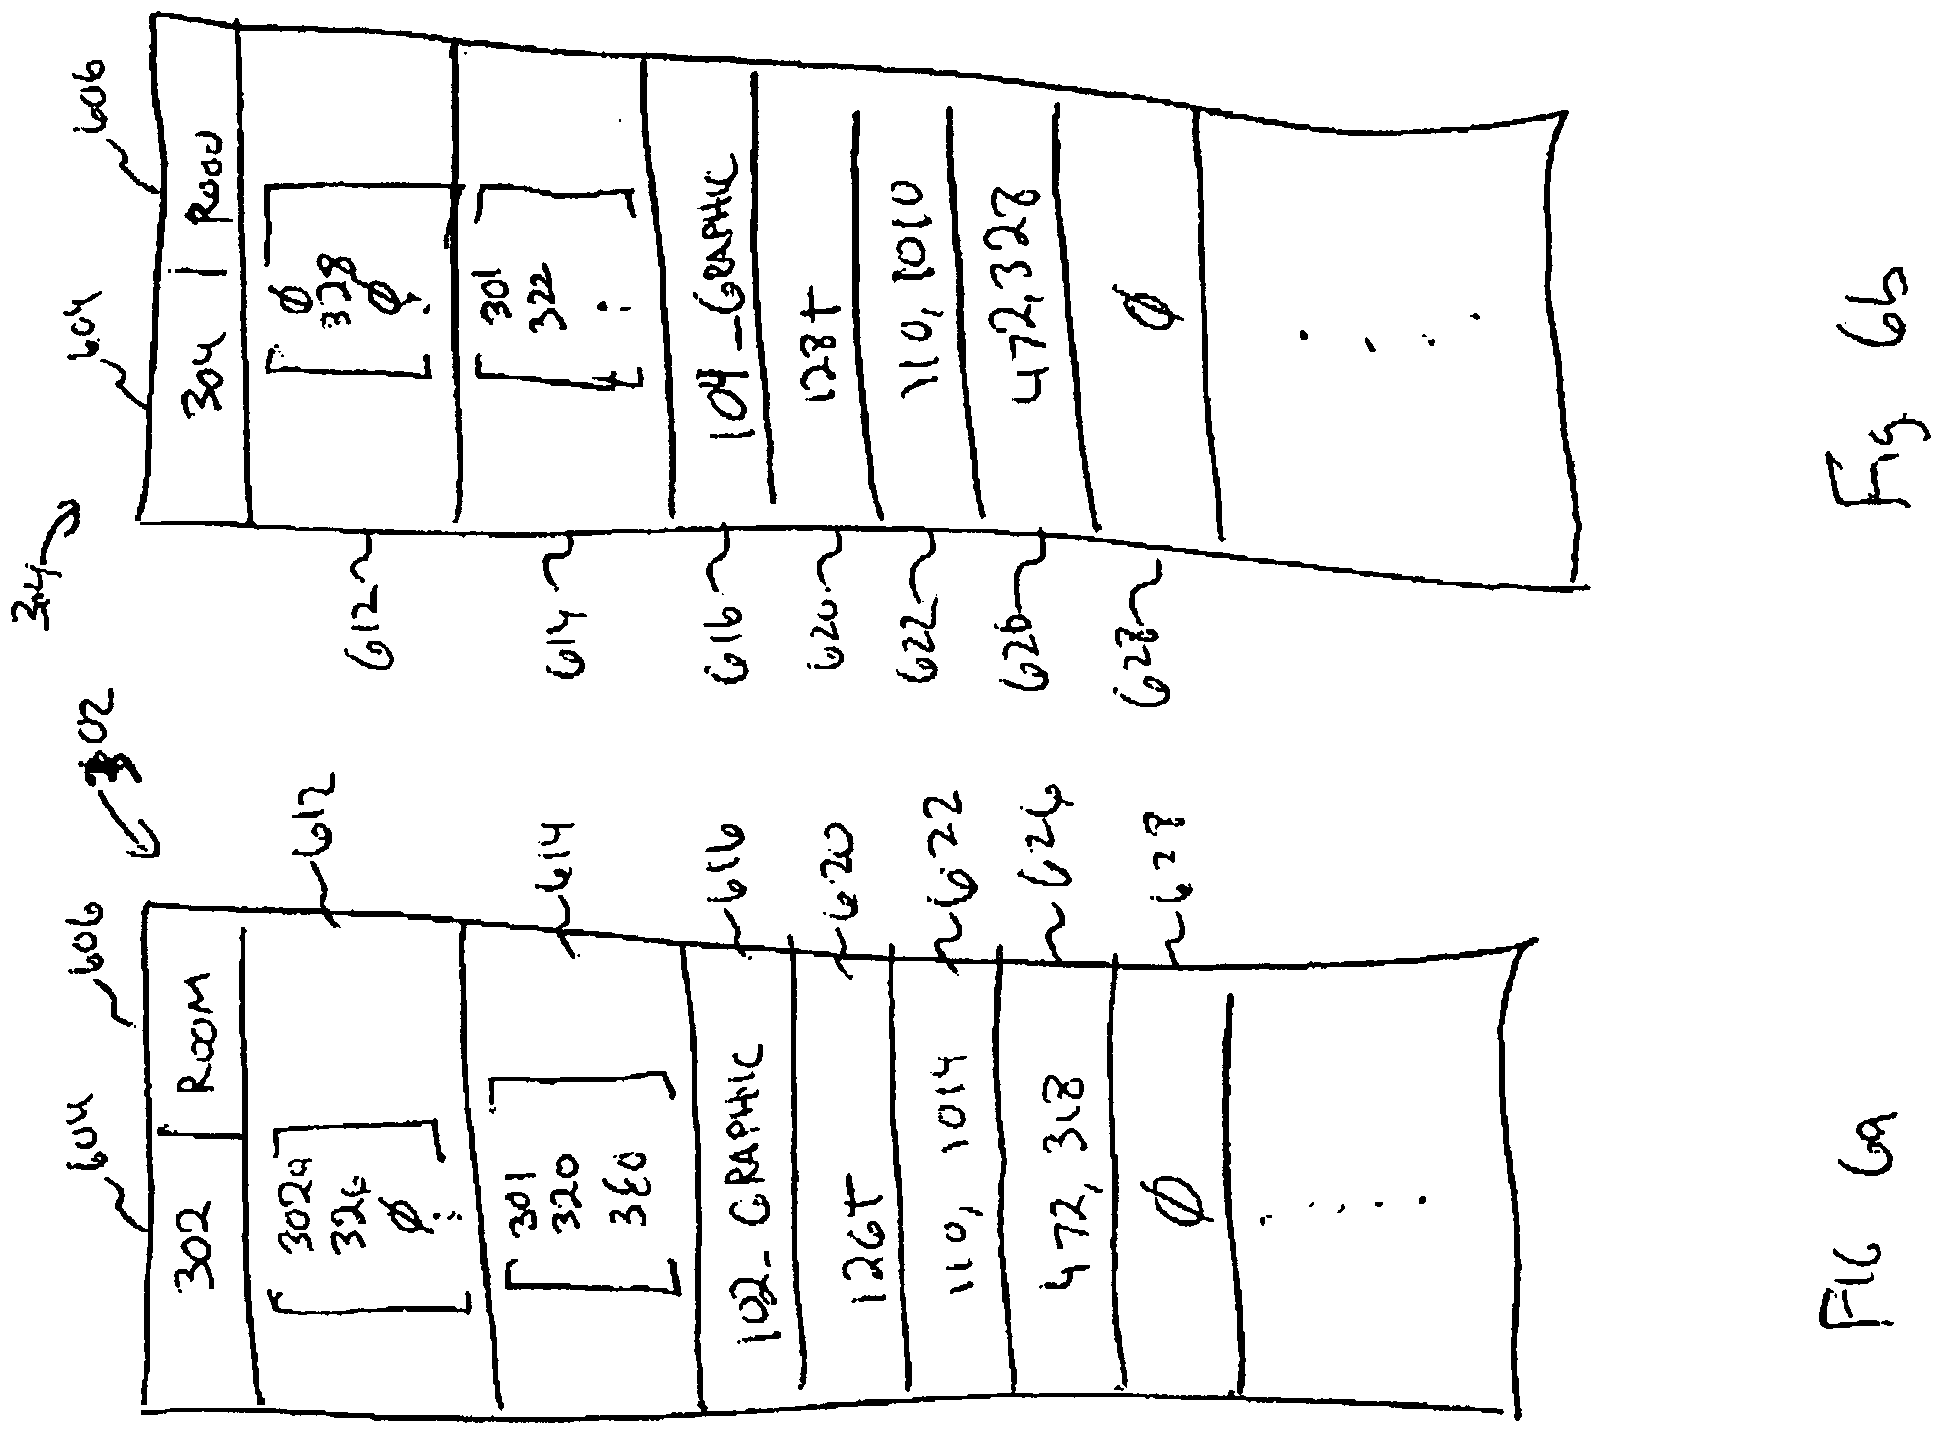 302
604
606
302 ROOM
302a
326
Ø
612
301
320
614
102-GRAPHIC
616
126t
620
110, 1014
622
472, 318
626
Ø
628
FIG 6a
304
604
606
304 Room
Ø
328
Ø
612
301
322
614
104-GRAPHIC
616
128t
620
110, 1010
622
472,328
626
Ø
628
Fig 6b